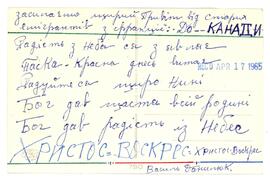 засилаємо щирий Привіт від старих
емігрантів з Франції:- До - КАНАДИ
Радість з Неба ся з'являє
Пасха - Красна днесь витає
Радуйтеся щиро Нині
REC'D APR 17 1965
Бог дав щастя всій родині
Бог дав радість із Небес
ХРИСТОС - ВОСКРЕС = Христос-Воскрес
Василь Данилюк.